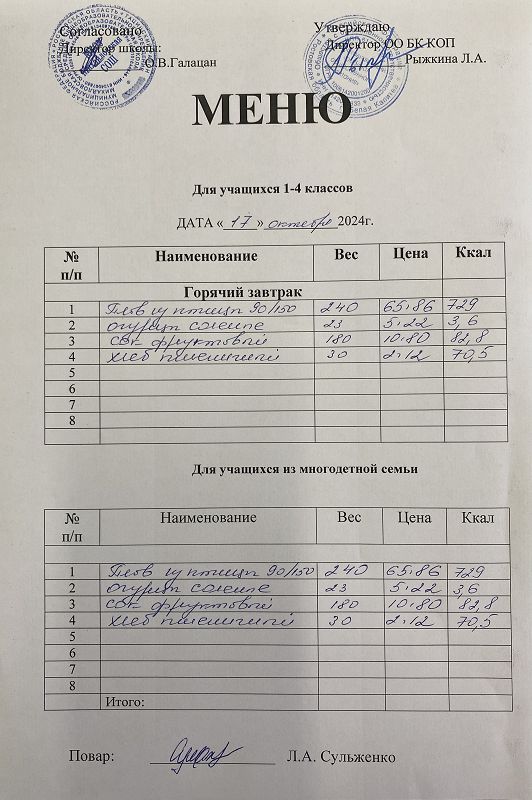 Согласовано Утверждаю
Директор школы: Директор ОО БК-КОП
О.В.Галацан Рыжкина Л.А.
МЕНЮ
Для учащихся 1-4 классов
ДАТА « 17 » октября 2024г.
№ п/п Наименование Вес Цена Ккал
Горячий завтрак
1 Плов из птицы 90/150 240 65.86 729
2 огурцы соленые 23 5.22 3,6
3 сок фруктовый 180 10.80 82,8
4 хлеб пшеничный 30 2.12 70,5
5
6
7
8
Для учащихся из многодетной семьи
№ п/п Наименование Вес Цена Ккал
1 Плов из птицы 90/150 240 65.86 729
2 огурцы соленые 23 5.22 3,6
3 сок фруктовый 180 10.80 82,8
4 хлеб пшеничный 30 2.12 70,5
5
6
7
8
Итого:
Повар: Л.А. Сульженко